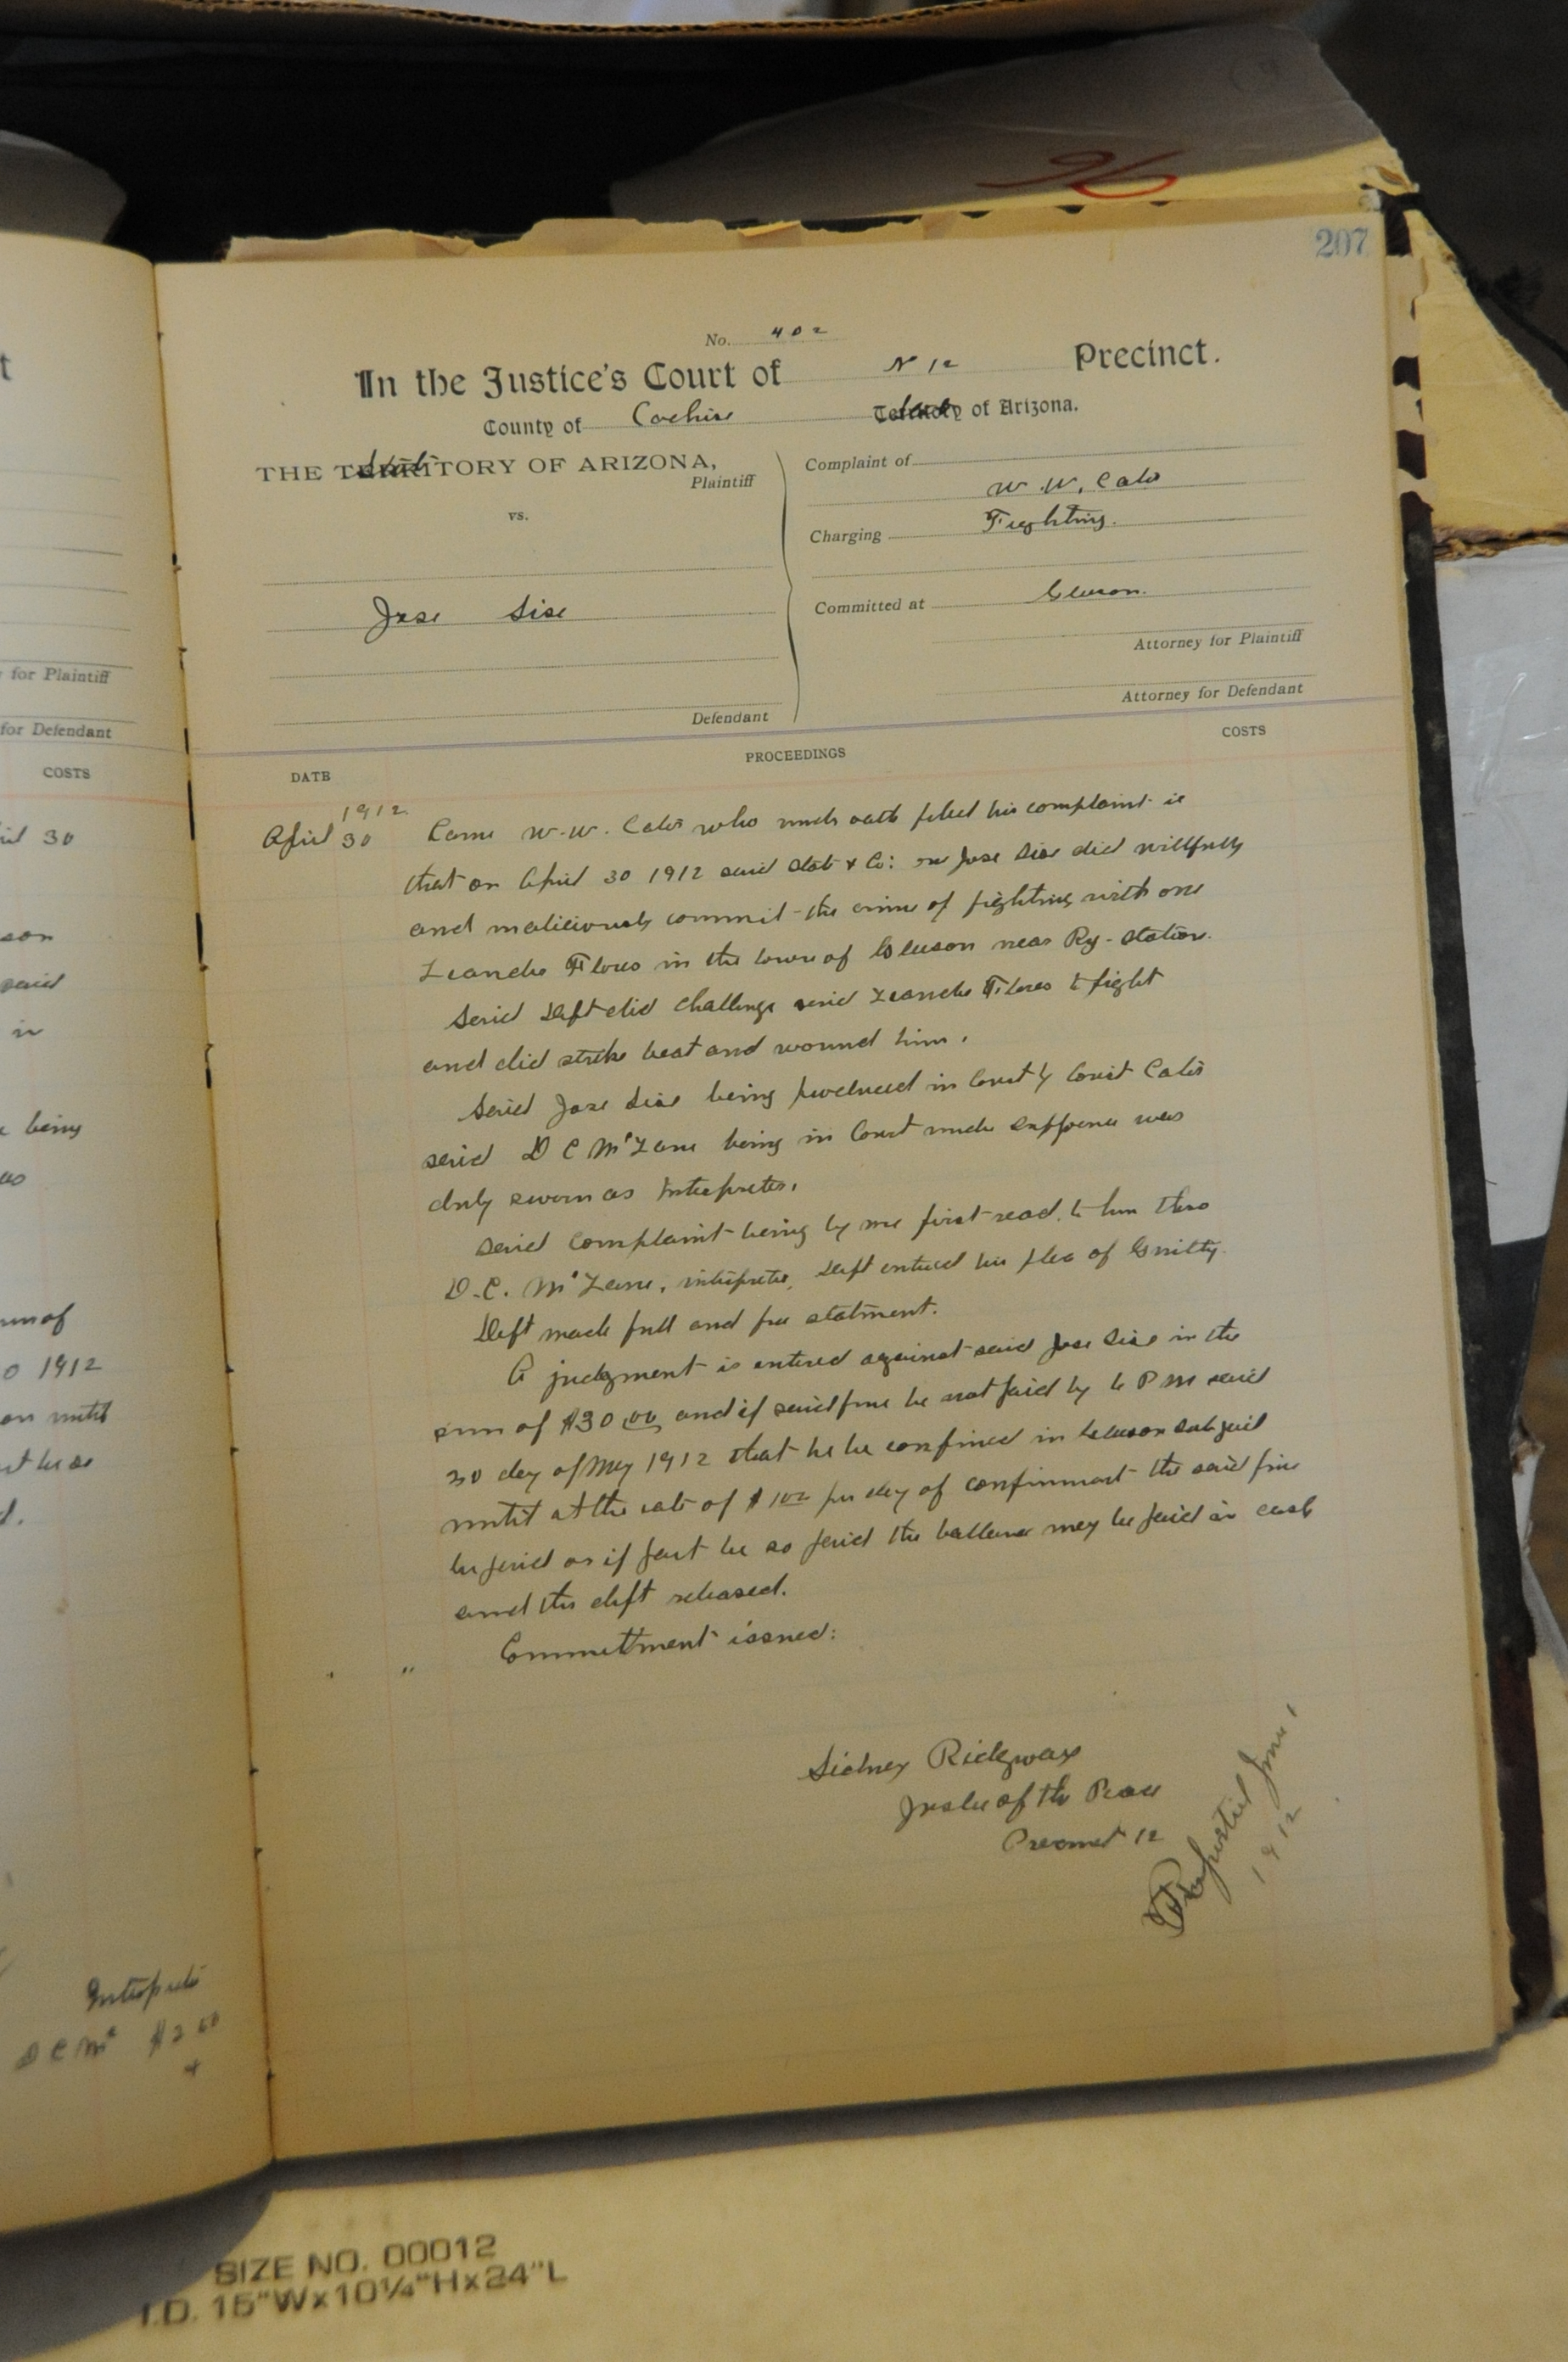 96
207
No. 402
In the Justice's Court of N 12 Precinct.
County of Cochise Territory State of Arizona.
THE TERRITORY State OF ARIZONA,
Plaintiff
vs.
Jose Sise
Defendant
Complaint of
W. W. Cates
Charging Fighting.
Committed at Gleeson.
Attorney for Plaintiff
Attorney for Defendant
DATE PROCEEDINGS COSTS
1912
April 30 Came W. W. Cates who under oath filed his complaint ie
that on April 30 1912 said State & Co: one Jose Sise did willfully
and maliciously commit the crime of fighting with one
Leandro Flores in the town of Gleeson near Ry. Station.
Said Deft did challenge said Leandro Flores to fight
and did strike beat and wound him.
Said Jose Sise being produced in Court by Const Cates
said D C McLane being in Court under suppoena was
duly sworn as Interpreter.
Said complaint being by me first read to him thro
D. C. McLane, interpreter, Deft entered his plea of Guilty.
Deft made full and free statment.
A judgment is entered against said Jose Sise in the
sum of $30 00 and if said fine be not paid by 6 P M said
30 day of May 1912 that he be confined in Gleeson sub jail
until at the rate of $1 00 per day of confinment the said fine
be paid or if part be so paid the ballance may be paid in cash
and the deft released.
" Committment issued:
Sidney Ridgway
Justice of the Peace
Precinct 12
Reported June 1
1912
t
for Plaintiff
for Defendant
COSTS
30
son
said
in
being
as
sum of
0 1912
on until
d.
Interpreter
D C Mc $2 00
SIZE NO. 00012
I.D. 15"Wx10¼"Hx24"L